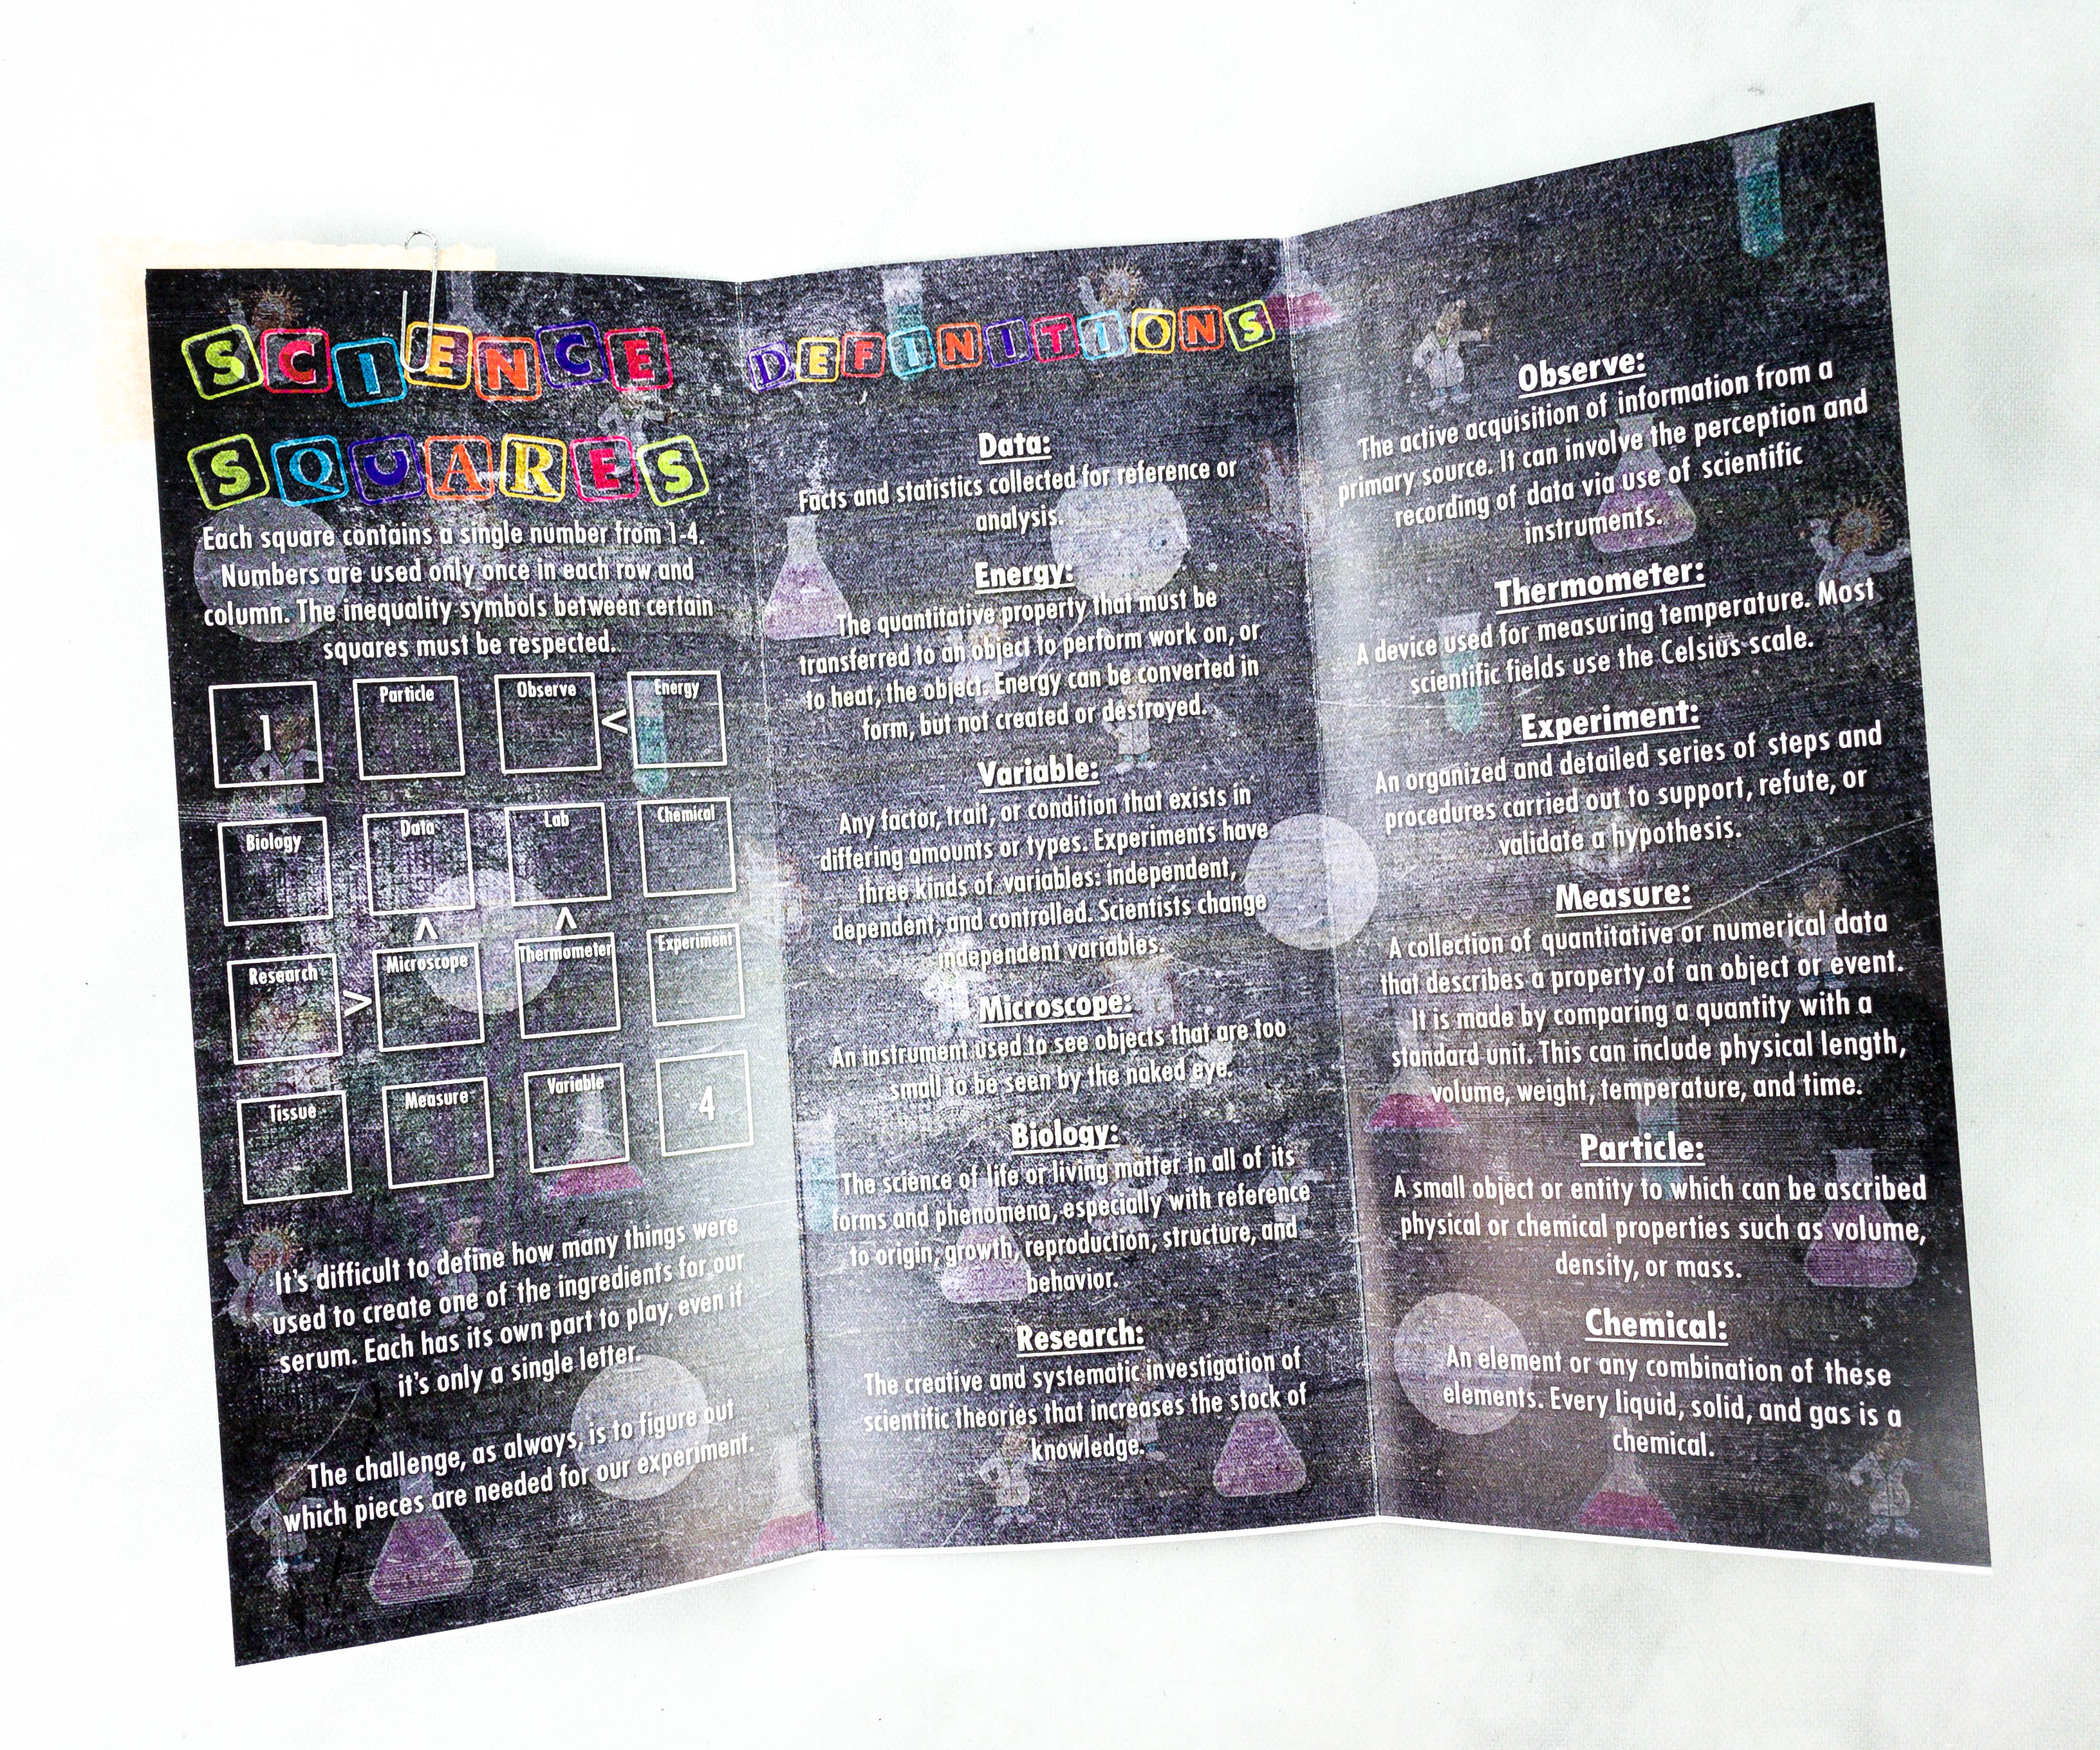 SCIENCE
SQUARES
Each square contains a single number from 1-4.
Numbers are used only once in each row and
column. The inequality symbols between certain
squares must be respected.
1 Particle Observe < Energy
Biology Data Lab Chemical
^ ^
Research > Microscope Thermometer Experiment
Tissue Measure Variable 4
It's difficult to define how many things were
used to create one of the ingredients for our
serum. Each has its own part to play, even if
it's only a single letter.
The challenge, as always, is to figure out
which pieces are needed for our experiment.
DEFINITIONS
Data:
Facts and statistics collected for reference or
analysis.
Energy:
The quantitative property that must be
transferred to an object to perform work on, or
to heat, the object. Energy can be converted in
form, but not created or destroyed.
Variable:
Any factor, trait, or condition that exists in
differing amounts or types. Experiments have
three kinds of variables: independent,
dependent, and controlled. Scientists change
independent variables.
Microscope:
An instrument used to see objects that are too
small to be seen by the naked eye.
Biology:
The science of life or living matter in all of its
forms and phenomena, especially with reference
to origin, growth, reproduction, structure, and
behavior.
Research:
The creative and systematic investigation of
scientific theories that increases the stock of
knowledge.
Observe:
The active acquisition of information from a
primary source. It can involve the perception and
recording of data via use of scientific
instruments.
Thermometer:
A device used for measuring temperature. Most
scientific fields use the Celsius scale.
Experiment:
An organized and detailed series of steps and
procedures carried out to support, refute, or
validate a hypothesis.
Measure:
A collection of quantitative or numerical data
that describes a property of an object or event.
It is made by comparing a quantity with a
standard unit. This can include physical length,
volume, weight, temperature, and time.
Particle:
A small object or entity to which can be ascribed
physical or chemical properties such as volume,
density, or mass.
Chemical:
An element or any combination of these
elements. Every liquid, solid, and gas is a
chemical.